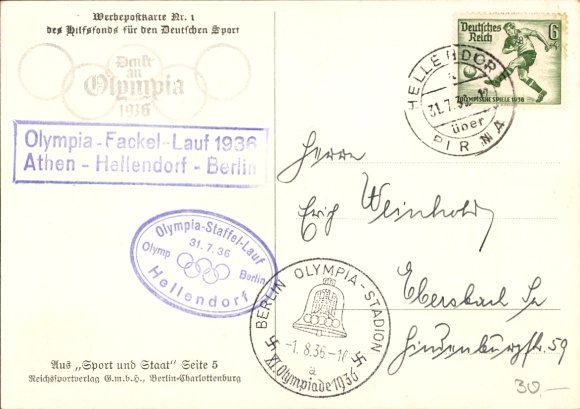 Werbepostkarte Nr. 1
des Hilfsfonds für den Deutschen Sport
Denkt
an
Olympia
1936
Olympia-Fackel-Lauf 1936
Athen - Hellendorf - Berlin
Olympia-Staffel-Lauf
31. 7. 36
Olymp Berlin
Hellendorf
Aus „Sport und Staat“ Seite 5
Reichssportverlag G.m.b.H., Berlin-Charlottenburg
Deutsches
Reich
6
OLYMPISCHE SPIELE 1936
HELLENDORF
31.7.36
über
PIRNA
Herrn
Erich Weinhold
Ebersbach Sa
Hindenburgstr. 59
BERLIN OLYMPIA-STADION
-1.8.36-
a
XI. Olympiade 1936
30,-